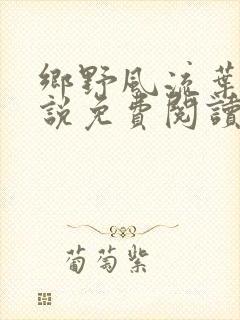 鄉野風流葉
說免費閱讀
葡萄紫